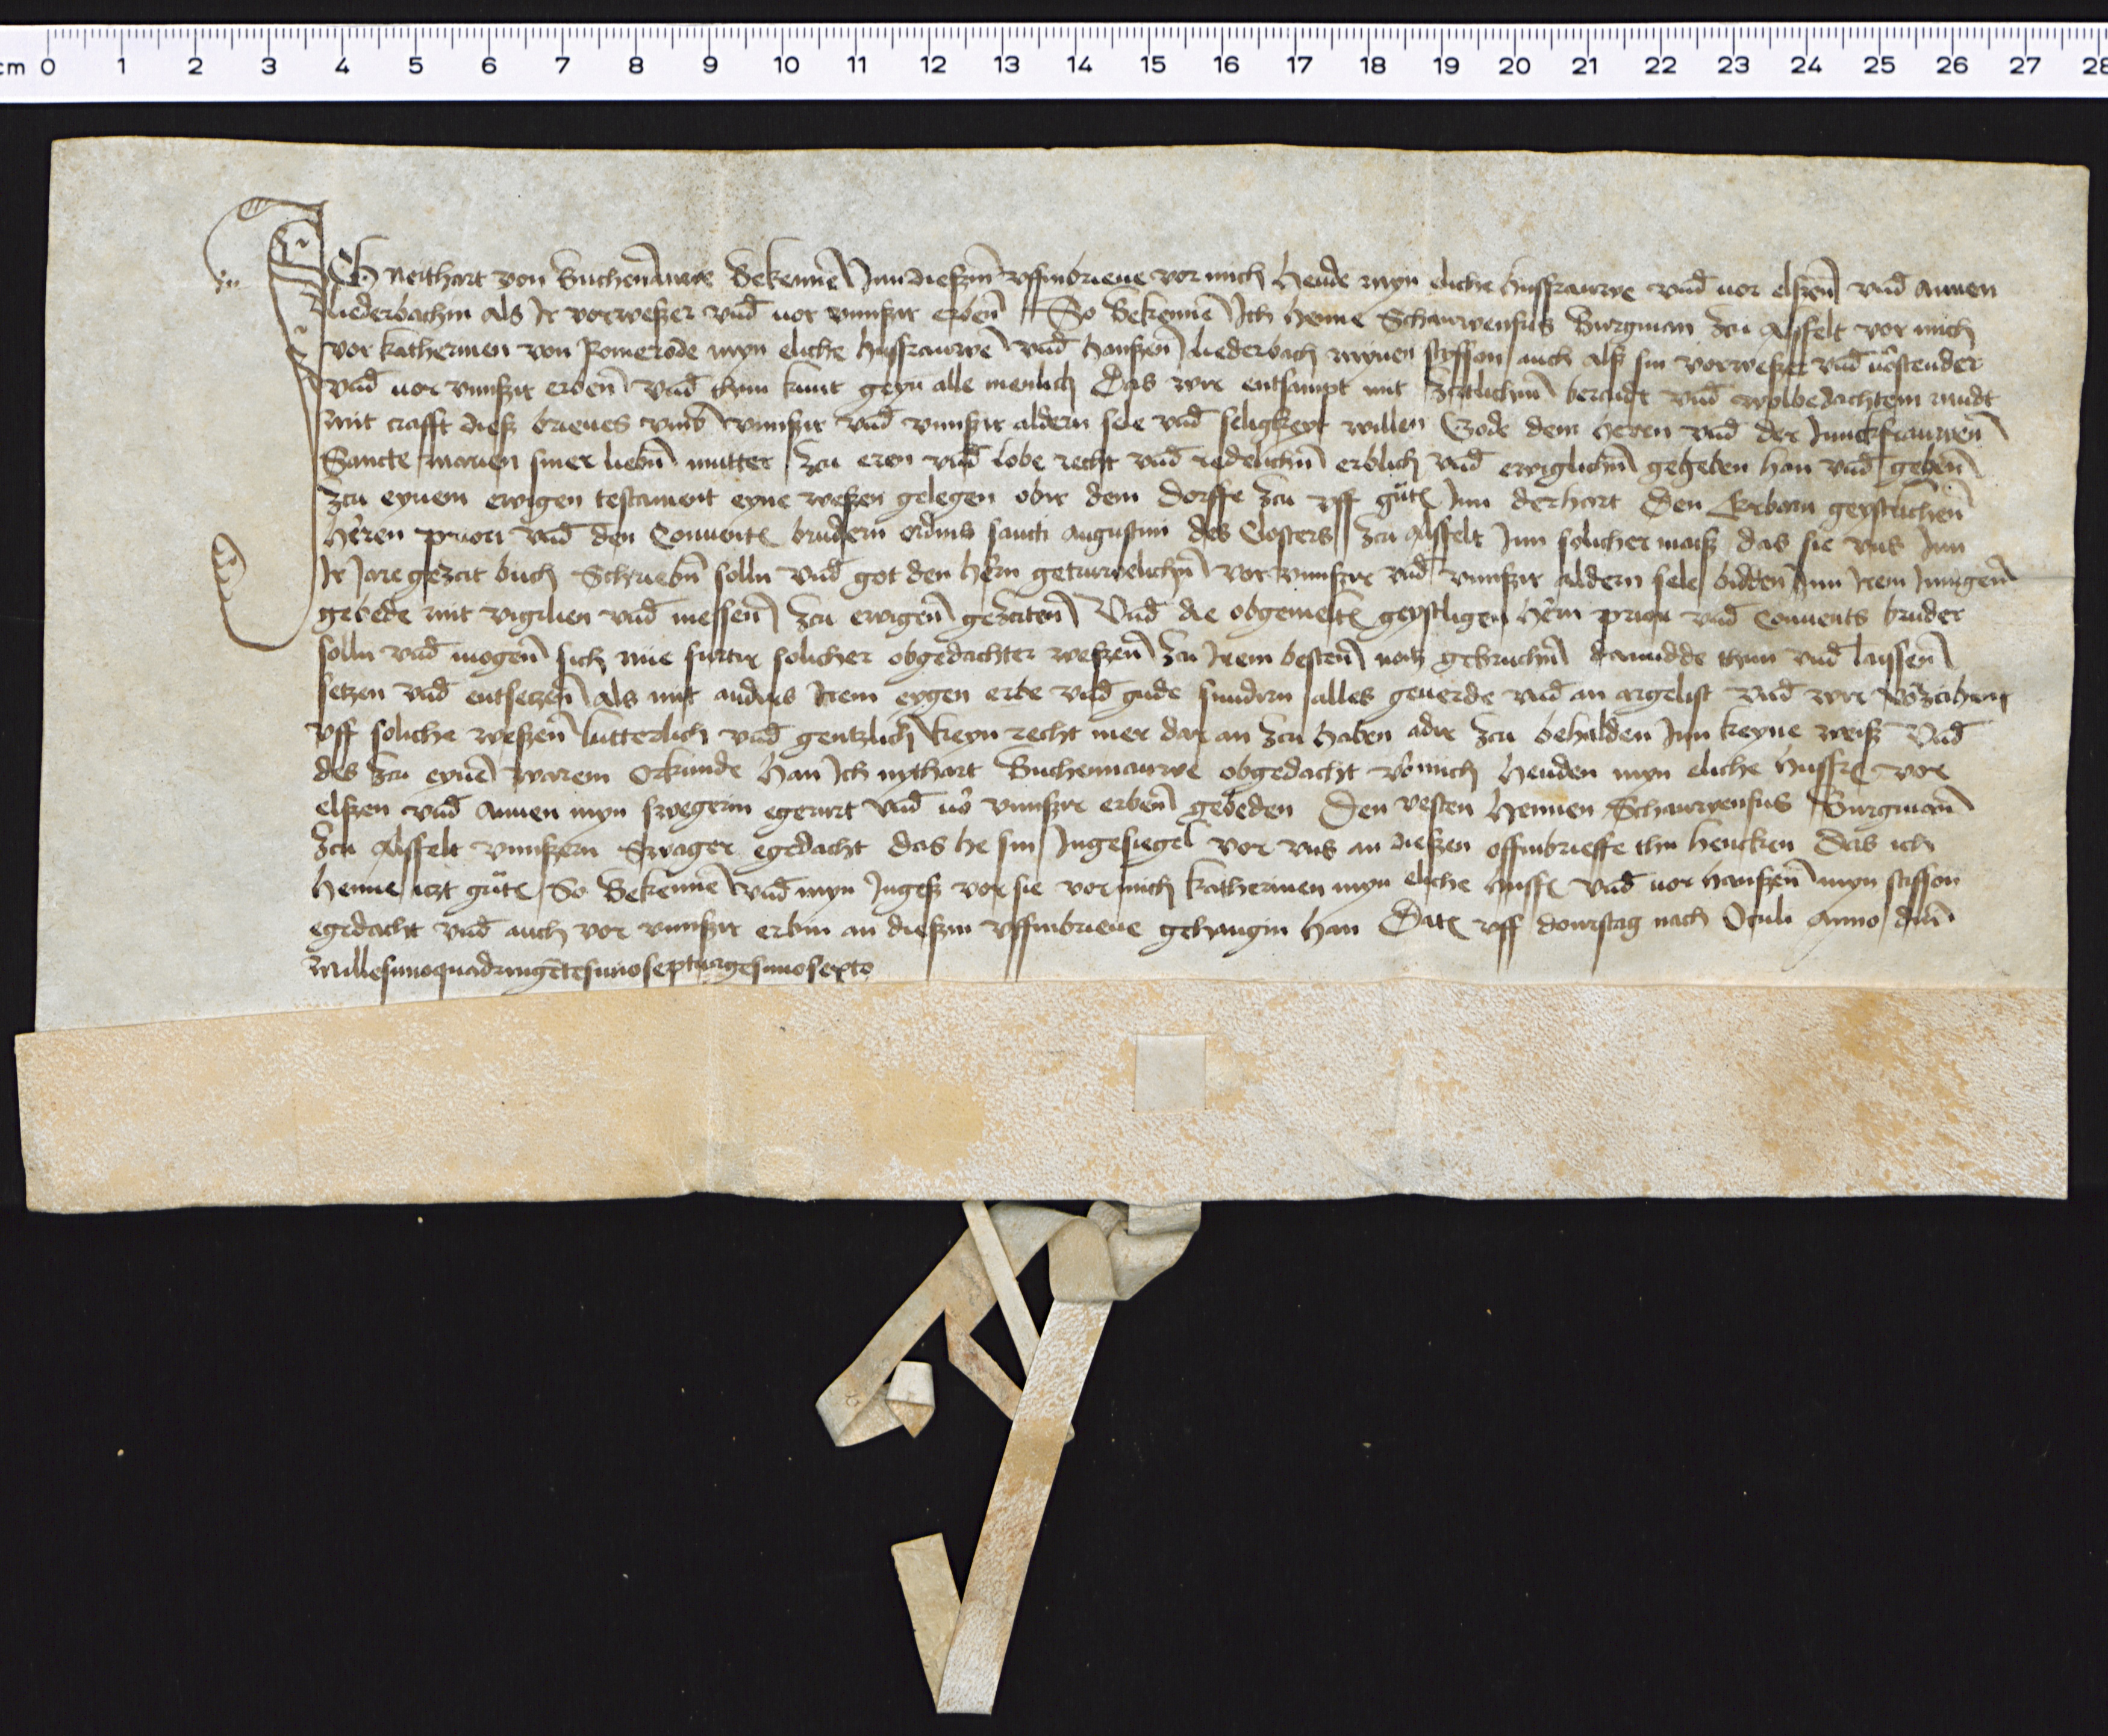 cm 0 1 2 3 4 5 6 7 8 9 10 11 12 13 14 15 16 17 18 19 20 21 22 23 24 25 26 27 28
Ich neithart von Buchenauwe Bekenne Inn dießem uffinbrieue vor mich Heude myn eliche hussfrauwe vnd vor elßen vnd annen
liederbachin als Ir vorweßer vnd vor vnnßir erben So Bekenne Ich Henne Schauwenfus Burgman zcu Alsfelt vor mich
vor katherinen von Romerode myn eliche hussfrauwe vnd hanßen liederbach mynen styffson auch alß sin vorweßer vnd vorstender
vnd vor vnnßir erben vnd thun kunt geyn alle menlich Das wir entsampt mit zcitlichem beradt vnd wolbedachtem mudt
mit crafft dieß brieues vmb vnnßir vnd vnnßir aldern sele vnd seligkeyt willen Gode dem heren vnd der Junckfrauwen
Sancte marien siner lieben mutter zcu eren vnd lobe recht vnd redelichen erblich vnd ewiglichen gegeben han vnd geben
zcu eynem ewigen testament eyne weßen gelegen obir dem dorffe zcu yff gut Inn der hart Den Erbarn geystlichen
heren priori vnd den Conuent brudern ordins sancti augustini des Closters zcu Alsfelt Inn solicher maiß das sie vns Inn
Ir Jaregezcit buch Schrieben solln vnd got den hern getruwelichen vor vnnßir vnd vnnßir aldern sele bidden Inn Irem Innigen
gebede mit vigilien vnd messen zcu ewigen gezciten Vnd die obgemelt geystligen hern prior vnd Conuents bruder
solln vnd mogen sich nue furtir solicher obgedachter weßen zcu Irem besten notz gebruchen damidde thun vnd laissen
setzen vnd entsetzen als mit anders Irem eygen erbe vnd gude sundern alles geuerde vnd an argelist vnd wir vorzcihen
vff soliche weßen lutterlich vnd gentzlich keyn recht mer dar an zcu haben adir zcu behalden Inn keyne weiß Vnd
des zcu eyne warem Orkunde Han Ich nythart Buchennauwe obgedacht vor mich Heuden myn eliche hussfr vor
elßen vnd annen myn swegerin egerurt vnd vor vnnßir erben gebeden Den vesten Hennen Schauwenfus Burgman
zcu Alsfelt vnnßern Swager egedacht das he sin Ingesiegel vor vns an dießen offinbrieffe thu hencken Das ich
Henne itzt gut So Bekenne vnd myn Ingeß vor sie vor mich katherinen myn eliche hussf vnd vor hanßen myn stiffson
egedacht vnd auch vor vnnßir erbin an dießin vffinbrieue gehangin han Dat vff donrstag nach Oculi Anno dni
millesimoquadringetesimoseptuagesimosexto